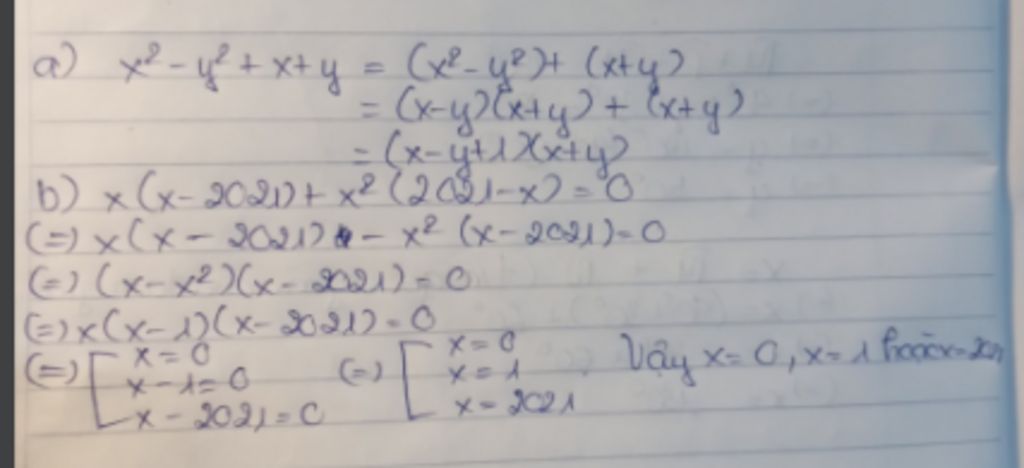 a) x² - y² + x + y = (x² - y²) + (x+y)
= (x-y)(x+y) + (x+y)
= (x-y+1)(x+y)
b) x(x - 2021) + x² (2021-x) = 0
(=) x(x - 2021) - x² (x-2021) = 0
(=) (x-x²)(x-2021) = 0
(=) x(x-1)(x-2021) = 0
(=) [ x = 0 (=) [ x = 0
x - 1 = 0 x = 1
x - 2021 = 0 x = 2021
Vậy x = 0, x = 1 hoặc x = 2021